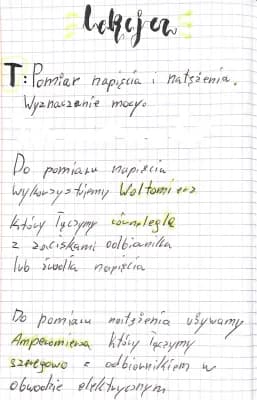 Lekcja
T: Pomiar napięcia i natężenia.
Wyznaczanie mocy.
Do pomiaru napięcia
wykorzystujemy Woltomierz
który łączymy równolegle
z zaciskami odbiornika
lub źródła napięcia
Do pomiaru natężenia używamy
Amperomierza który łączymy
szeregowo z odbiornikiem w
obwodzie elektrycznym